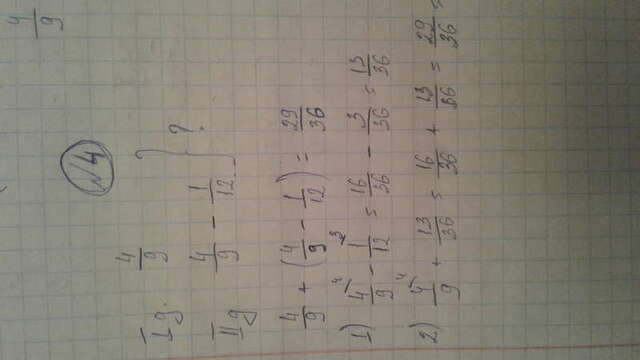 4/9
№4
I g. 4/9
II g 4/9 - 1/12 } ?
4/9 + (4/9 - 1/12) = 29/36
1) 4/9 ⁄4 - 1/12 ⁄3 = 16/36 - 3/36 = 13/36
2) 4/9 ⁄4 + 13/36 = 16/36 + 13/36 = 29/36 =